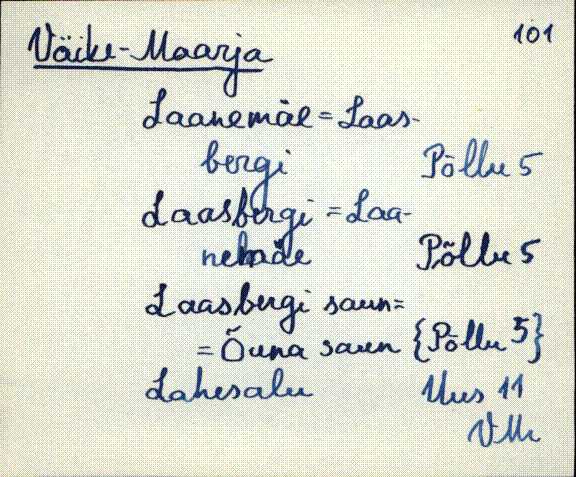 Väike-Maarja 101
Laanemäe = Laas-
bergi Põllu 5
Laasbergi = Laa-
nemäe Põllu 5
Laasbergi saun=
=Õuna saun {Põllu 5}
Lahesalu Uus 11
VM